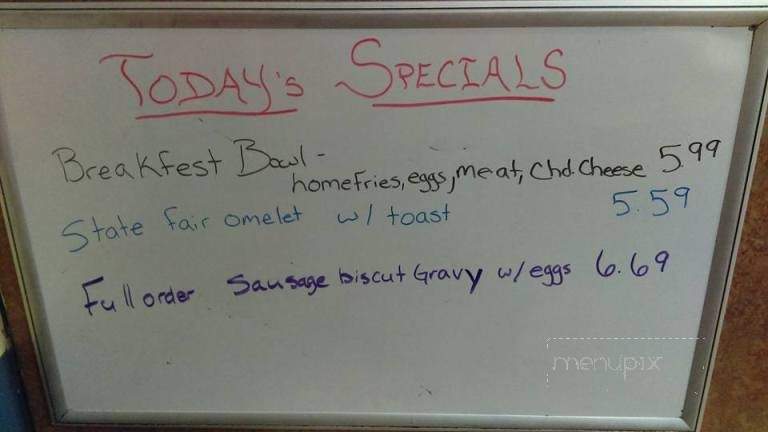 TODAY's SPECIALS
Breakfest Bowl -
homefries, eggs, meat, Chd. Cheese 5.99
State fair omelet w/ toast 5.59
Full order Sausage biscut Gravy w/eggs 6.69
menupix